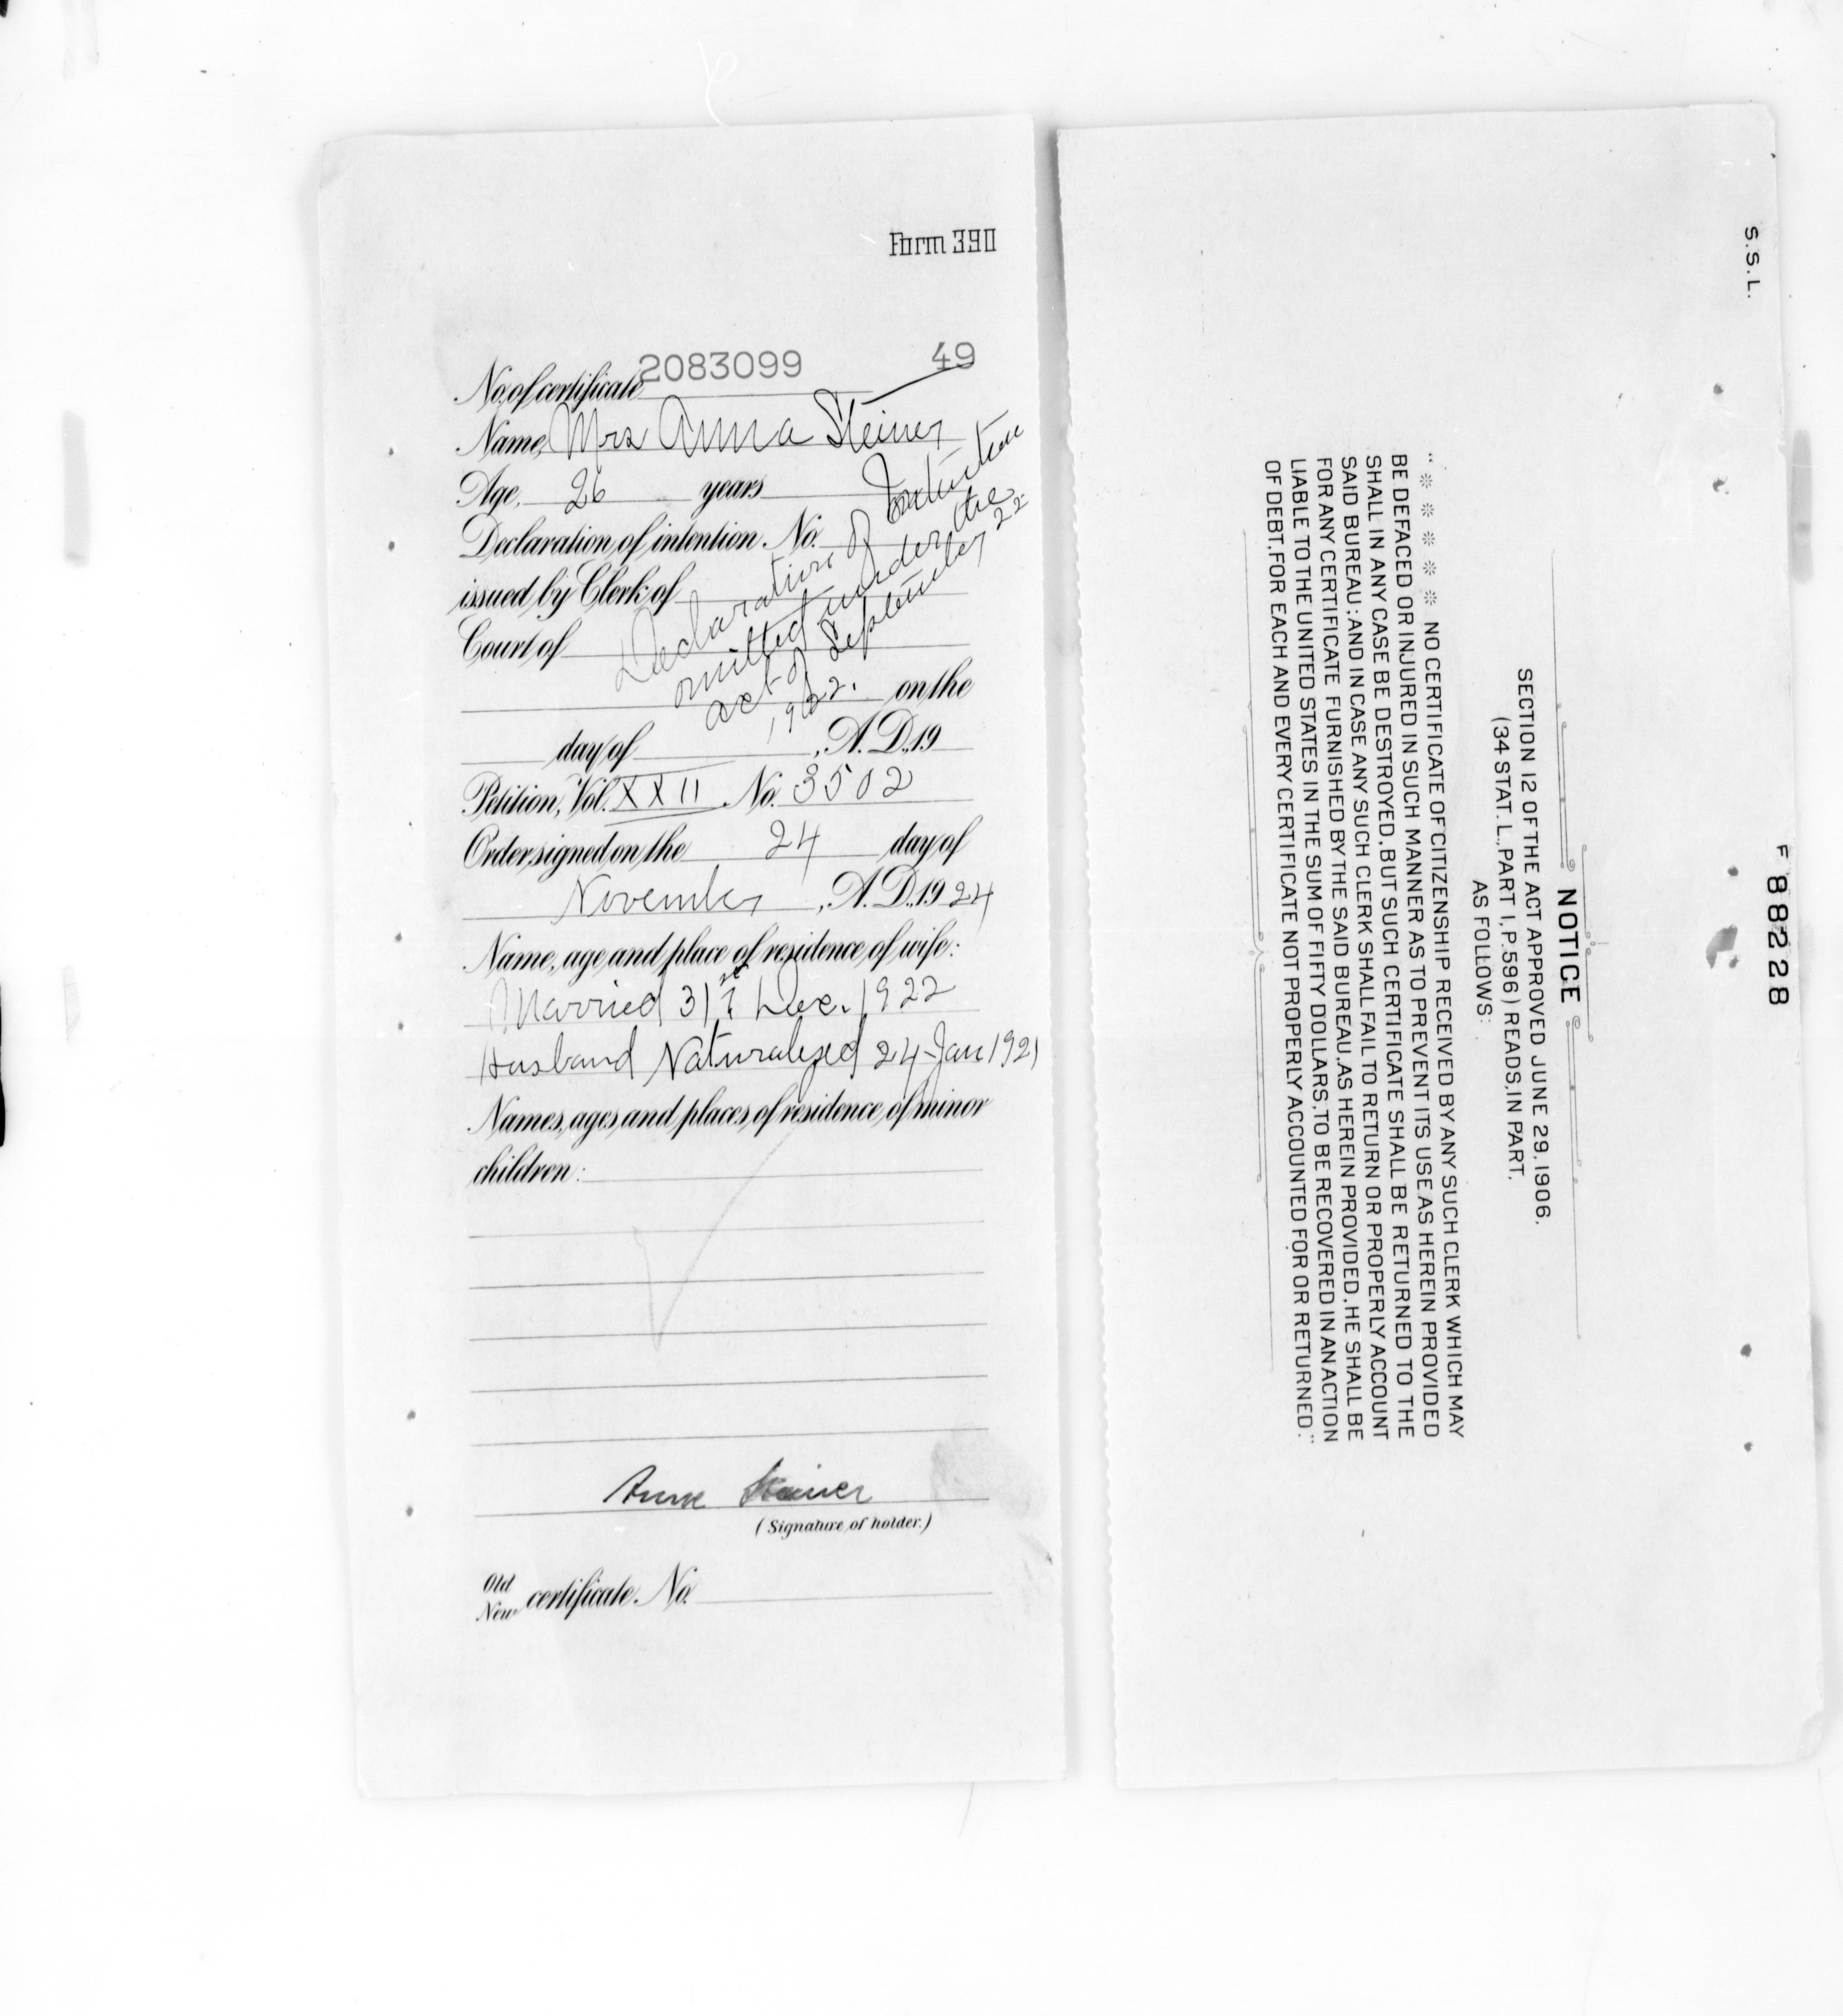 Form 390
No. of certificate 2083099 49
Name, Mrs Anna Steiner
Age, 26 years
Declaration of intention No.
issued by Clerk of
Court of
on the
Declaration of Intention
omitted under the
act of September 22
1922.
day of , A.D. 19
Petition, Vol. XXII No. 3502
Order signed on the 24 day of
November , A.D. 1924
Name, age and place of residence of wife:
Married 31st Dec. 1922
Husband Naturalized 24-Jan 1921
Names, ages and places of residence of minor
children:
Anna Steiner
(Signature of holder.)
Old
New certificate. No.
S.S.L.
F 88228
NOTICE
SECTION 12 OF THE ACT APPROVED JUNE 29, 1906.
(34 STAT. L., PART 1, P. 596) READS, IN PART,
AS FOLLOWS:
" ※ ※ ※ ※ ※ NO CERTIFICATE OF CITIZENSHIP RECEIVED BY ANY SUCH CLERK WHICH MAY
BE DEFACED OR INJURED IN SUCH MANNER AS TO PREVENT ITS USE AS HEREIN PROVIDED
SHALL IN ANY CASE BE DESTROYED, BUT SUCH CERTIFICATE SHALL BE RETURNED TO THE
SAID BUREAU; AND IN CASE ANY SUCH CLERK SHALL FAIL TO RETURN OR PROPERLY ACCOUNT
FOR ANY CERTIFICATE FURNISHED BY THE SAID BUREAU, AS HEREIN PROVIDED, HE SHALL BE
LIABLE TO THE UNITED STATES IN THE SUM OF FIFTY DOLLARS, TO BE RECOVERED IN AN ACTION
OF DEBT, FOR EACH AND EVERY CERTIFICATE NOT PROPERLY ACCOUNTED FOR OR RETURNED."